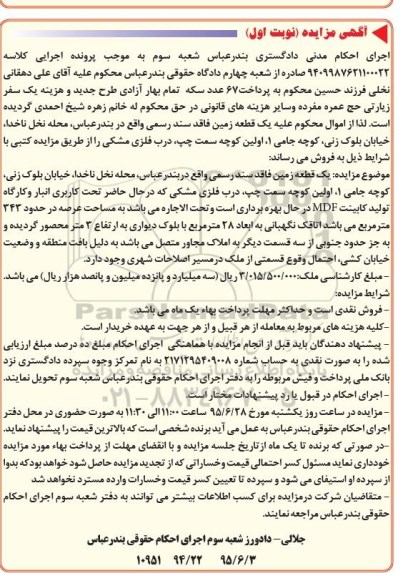 آگهی مزایده (نوبت اول)
اجرای احکام مدنی دادگستری بندرعباس شعبه سوم به موجب پرونده اجرایی کلاسه
۹۴۰۹۹۸۷۶۲۱۱۰۰۰۲۲ صادره از شعبه چهارم دادگاه حقوقی بندرعباس محکوم علیه آقای علی دهقانی
نخلی فرزند حسین محکوم به پرداخت۶۷ عدد سکه تمام بهار آزادی طرح جدید و هزینه یک سفر
زیارتی حج عمره مفرده وسایر هزینه های قانونی در حق محکوم له خانم زهره شیخ احمدی گردیده
است. لذا از اموال محکوم علیه یک قطعه زمین فاقد سند رسمی واقع در بندرعباس، محله نخل ناخدا،
خیابان بلوک زنی، کوچه جامی ۱، اولین کوچه سمت چپ، درب فلزی مشکی را از طریق مزایده کتبی با
شرایط ذیل به فروش می رساند:
موضوع مزایده: یک قطعه زمین فاقد سند رسمی واقع دربندرعباس، محله نخل ناخدا، خیابان بلوک زنی،
کوچه جامی ۱، اولین کوچه سمت چپ، درب فلزی مشکی که درحال حاضر تحت کاربری انبار وکارگاه
تولید کابینت MDF در حال بهره برداری است و تحت الاجاره می باشد به مساحت عرصه در حدود ۳۴۳
مترمربع می باشد اتاقک نگهبانی به ابعاد ۲۸ مترمربع با بلوک دیواری به ارتفاع ۳ متر محصور گردیده و
به جز حدود جنوبی از سه قسمت دیگر به املاک مجاور متصل می باشد به دلیل بافت منطقه و وضعیت
خیابان کشی، احتمال وقوع قسمتی از ملک درمسیر اصلاحات شهری وجود دارد.
- مبلغ کارشناسی ملک: ۳/۰۱۵/۵۰۰/۰۰۰ ریال (سه میلیارد و پانزده میلیون و پانصد هزار ریال) می باشد.
شرایط مزایده:
- فروش نقدی است و حداکثر مهلت پرداخت بهاء یک ماه می باشد.
-کلیه هزینه های مربوط به معامله از هر قبیل و از هر جهت به عهده خریدار است.
- پیشنهاد دهندگان باید قبل از انجام مزایده با هماهنگی اجرای احکام مبلغ ده درصد مبلغ ارزیابی
شده را به صورت نقدی به حساب شماره ۲۱۷۱۲۹۵۴۰۹۰۰۸ به نام تمرکز وجوه سپرده دادگستری نزد
بانک ملی پرداخت و فیش مربوطه را به دفتر اجرای احکام حقوقی بندرعباس شعبه سوم تحویل نمایند.
- اجرای احکام در قبول یا رد پیشنهادات مختار است.
- مزایده در ساعت روز یکشنبه مورخ ۹۵/۶/۲۸ ساعت ۱۱:۰۰ الی ۱۱:۳۰ به صورت حضوری در محل دفتر
اجرای احکام حقوقی بندرعباس به عمل می آید برنده شخصی است که بالاترین قیمت را پیشنهاد نماید.
-در صورتی که برنده تا یک ماه ازتاریخ جلسه مزایده و با انقضای مهلت از پرداخت بهاء مورد مزایده
خودداری نماید مسئول کسر احتمالی قیمت وخساراتی که از تجدید مزایده حاصل شود خواهد بود که بدوا
از سپرده او استیفای می شود و سپرده تا تعیین کسر قیمت وخسارات وارده مسترد نخواهد شد
- متقاضیان شرکت درمزایده برای کسب اطلاعات بیشتر می توانند به دفتر شعبه سوم اجرای احکام
حقوقی بندرعباس مراجعه نمایند.
جلالی- دادورز شعبه سوم اجرای احکام حقوقی بندرعباس
۹۵/۶/۳ ۹۴/۲۲ ۱۰۹۵۱